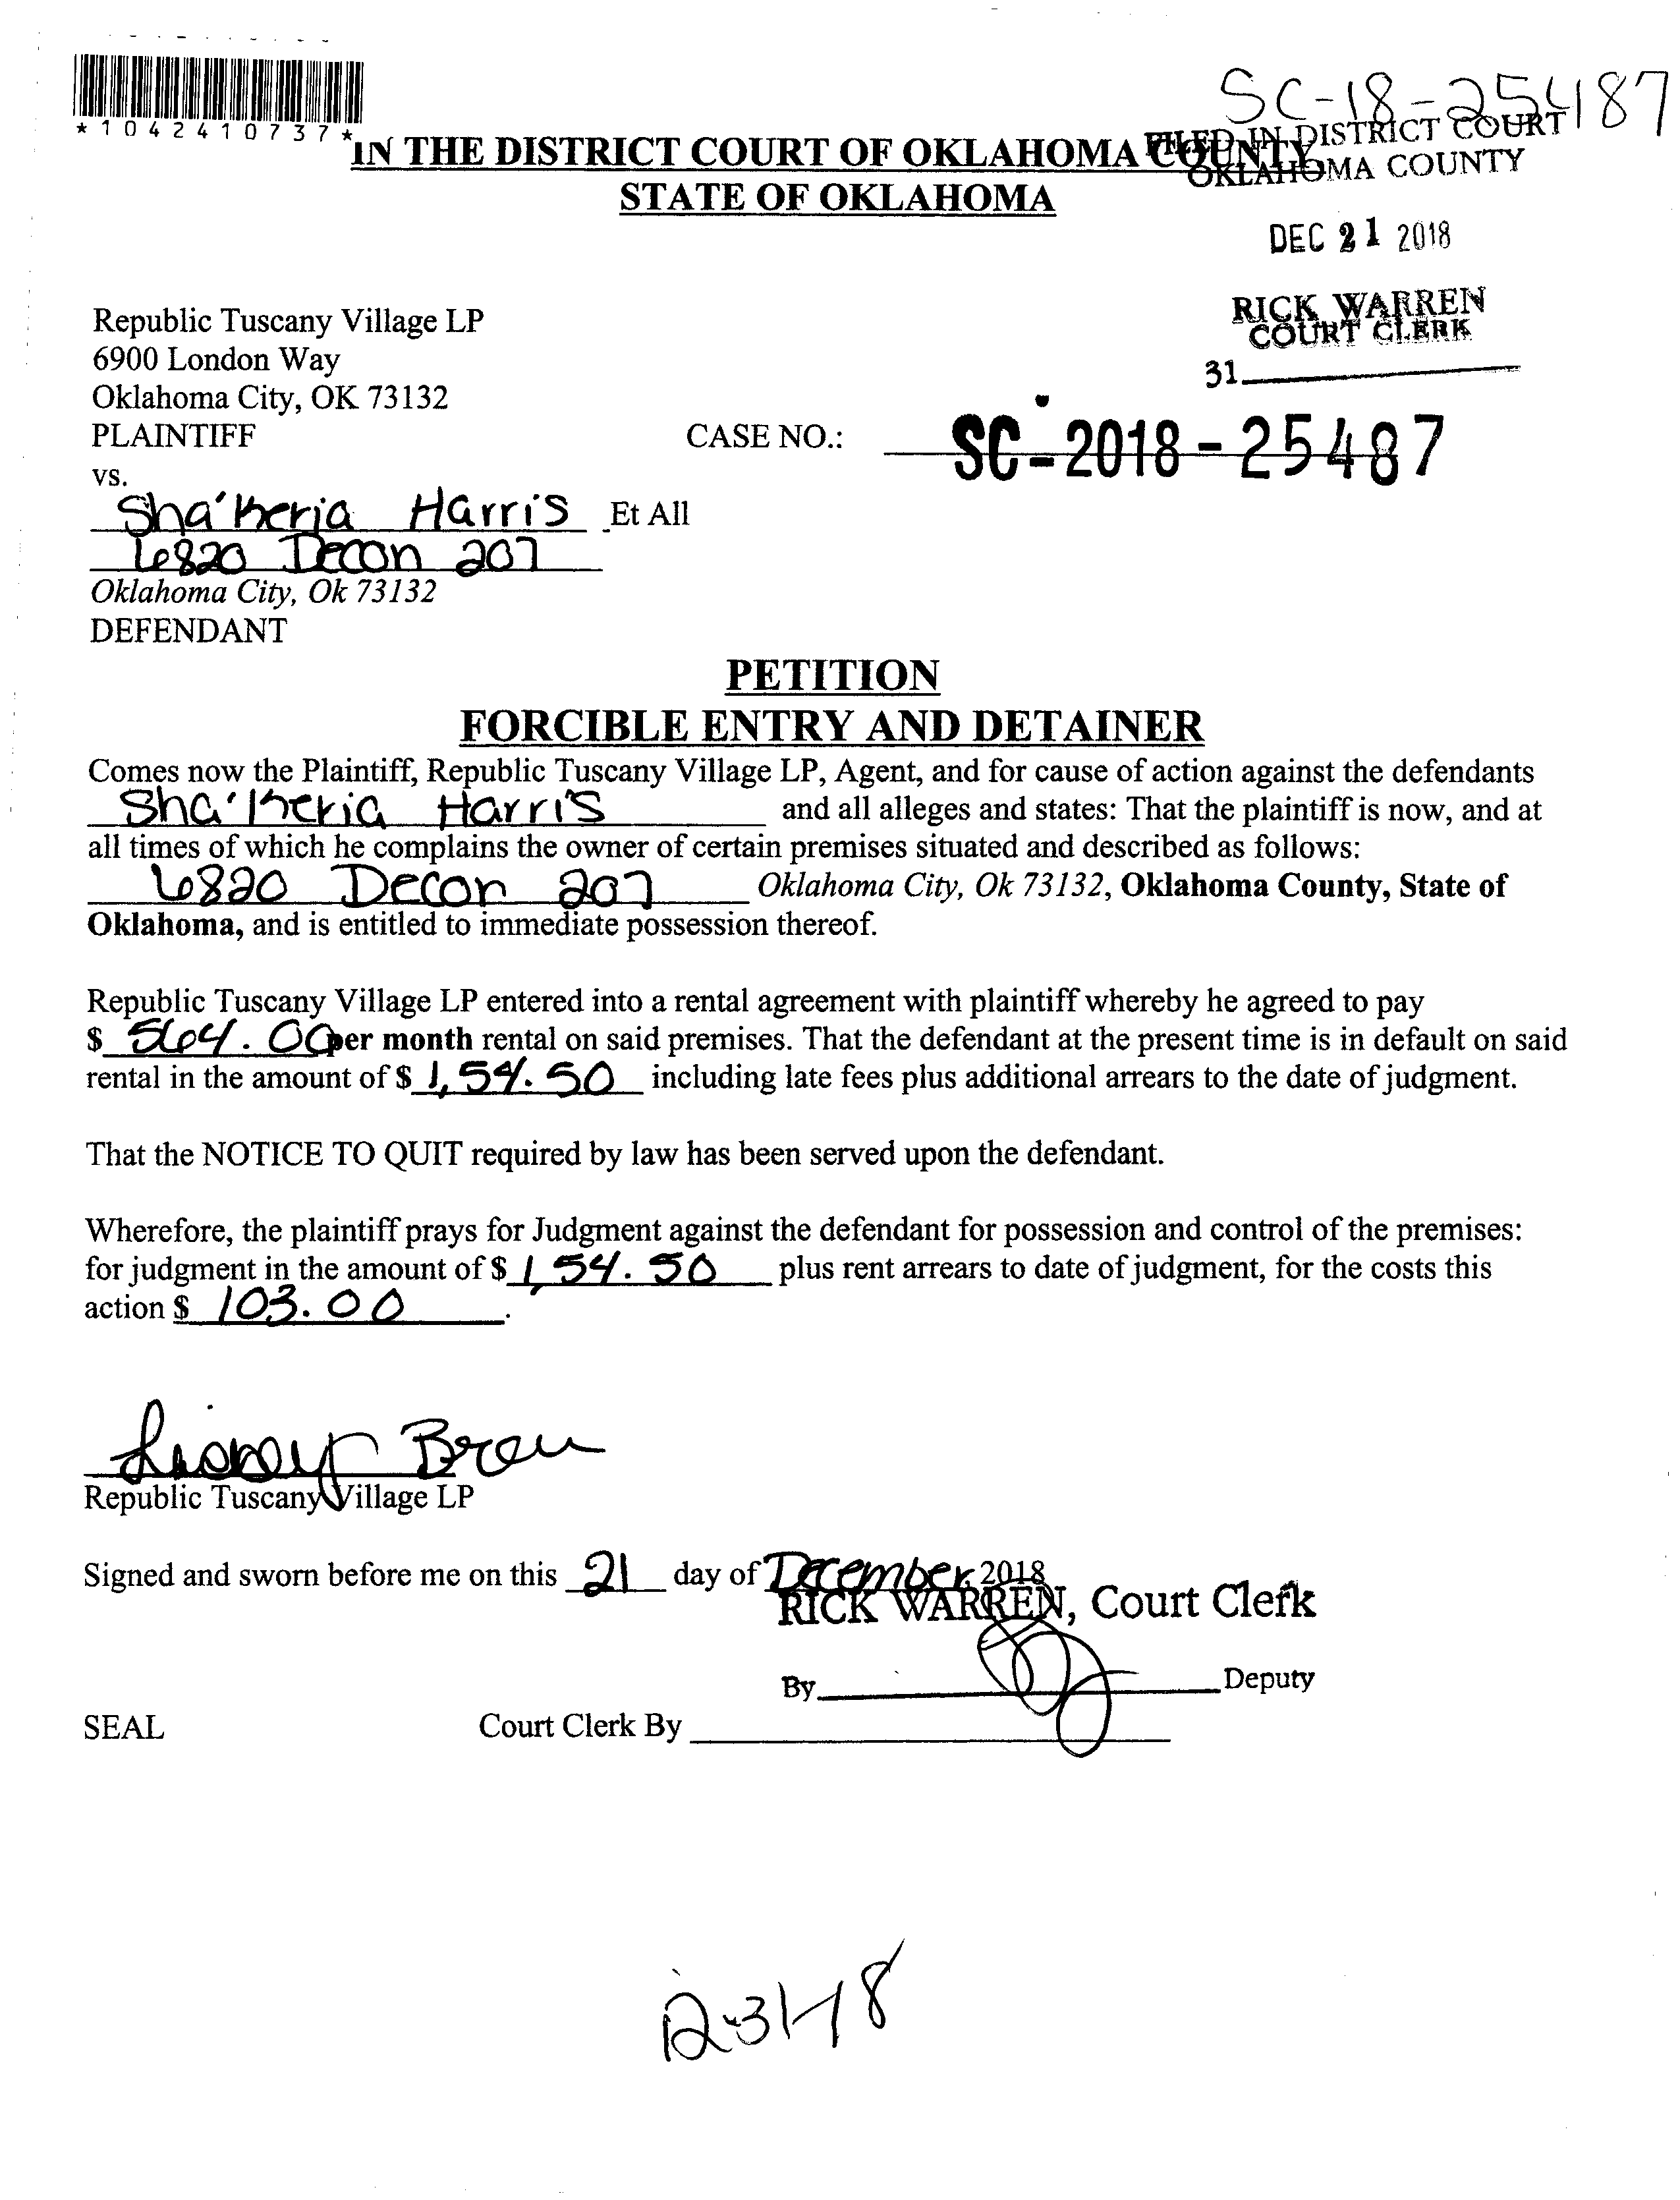 SC-18-25487
*1042410737*
IN THE DISTRICT COURT OF OKLAHOMA COUNTY
STATE OF OKLAHOMA
FILED IN DISTRICT COURT
OKLAHOMA COUNTY
DEC 21 2018
RICK WARREN
COURT CLERK
31
Republic Tuscany Village LP
6900 London Way
Oklahoma City, OK 73132
PLAINTIFF
CASE NO.: SC-2018-25487
vs.
Sha'Keria Harris Et All
6820 Decon 207
Oklahoma City, Ok 73132
DEFENDANT
PETITION
FORCIBLE ENTRY AND DETAINER
Comes now the Plaintiff, Republic Tuscany Village LP, Agent, and for cause of action against the defendants
Sha'Keria Harris and all alleges and states: That the plaintiff is now, and at
all times of which he complains the owner of certain premises situated and described as follows:
6820 Decon 207 Oklahoma City, Ok 73132, Oklahoma County, State of
Oklahoma, and is entitled to immediate possession thereof.
Republic Tuscany Village LP entered into a rental agreement with plaintiff whereby he agreed to pay
$ 564.00 per month rental on said premises. That the defendant at the present time is in default on said
rental in the amount of $ 1,54.50 including late fees plus additional arrears to the date of judgment.
That the NOTICE TO QUIT required by law has been served upon the defendant.
Wherefore, the plaintiff prays for Judgment against the defendant for possession and control of the premises:
for judgment in the amount of $ 1,54.50 plus rent arrears to date of judgment, for the costs this
action $ 103.00.
Republic Tuscany Village LP
Signed and sworn before me on this 21 day of December, 2018
RICK WARREN, Court Clerk
By Deputy
SEAL Court Clerk By
12-31-18